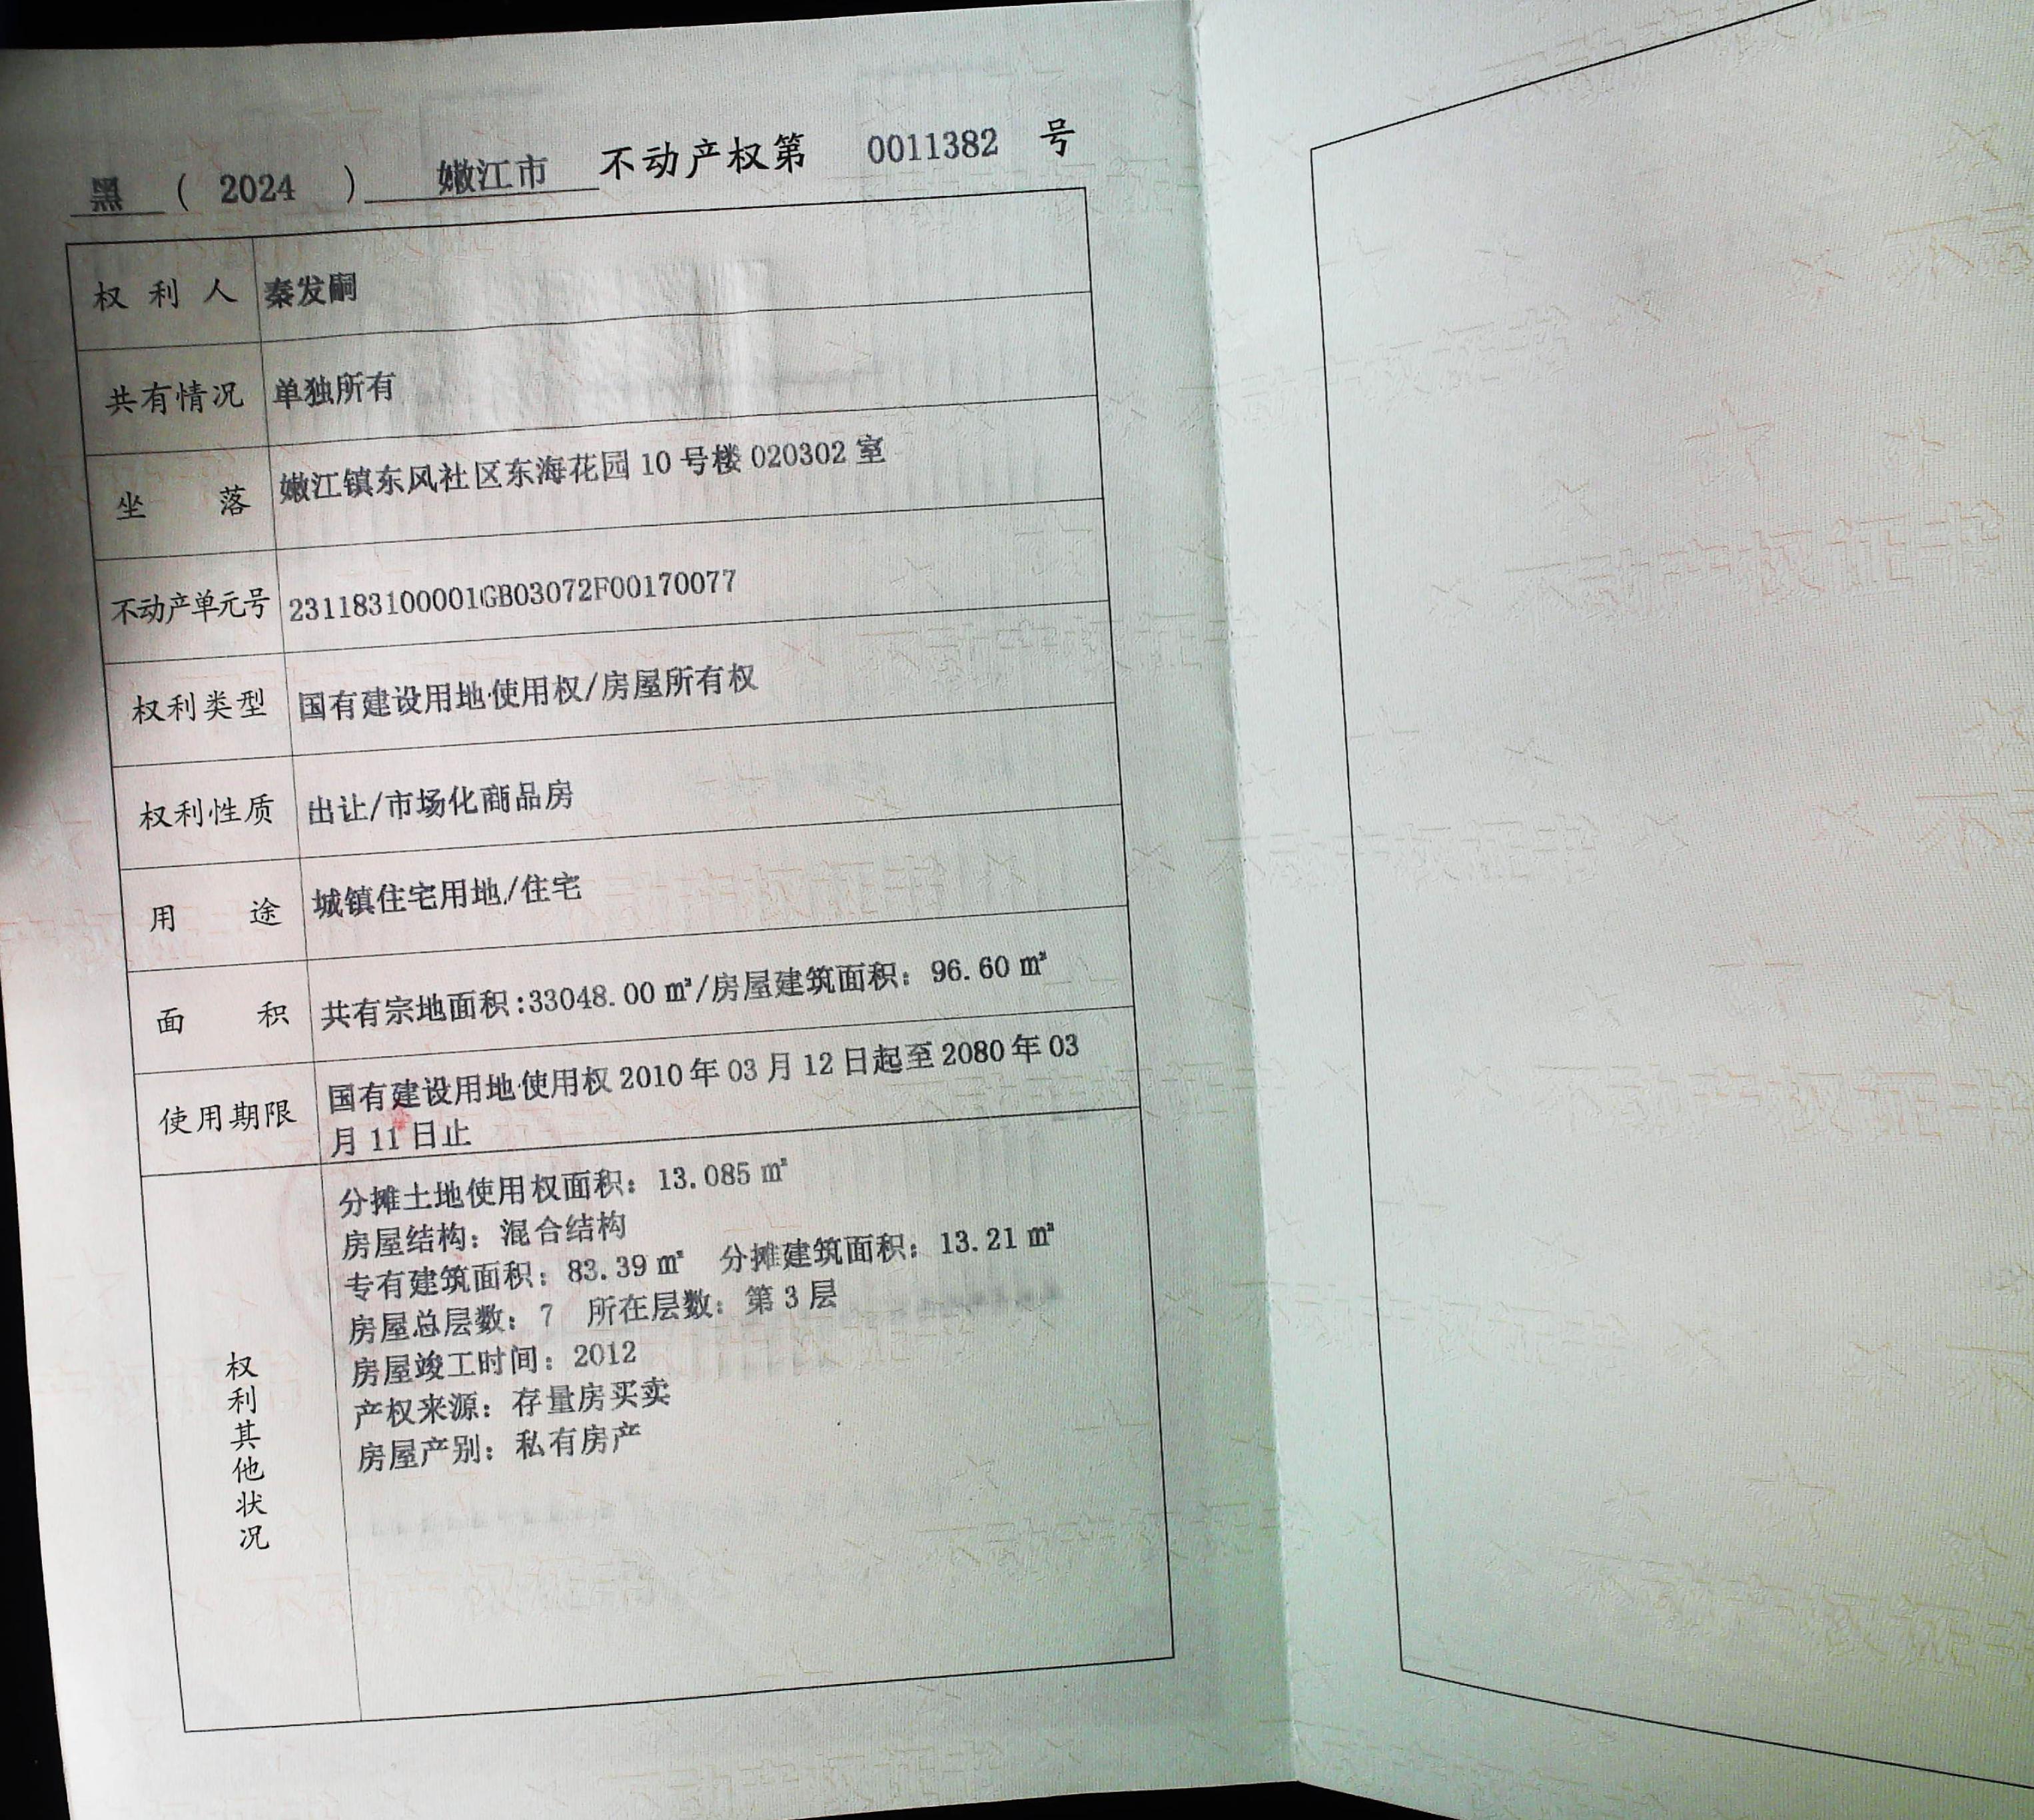 黑 ( 2024 ) 嫩江市 不动产权第 0011382 号
权利人 秦发嗣
共有情况 单独所有
坐落 嫩江镇东风社区东海花园 10 号楼 020302 室
不动产单元号 231183100001GB03072F00170077
权利类型 国有建设用地使用权/房屋所有权
权利性质 出让/市场化商品房
用途 城镇住宅用地/住宅
面积 共有宗地面积:33048.00 ㎡/房屋建筑面积：96.60 ㎡
使用期限 国有建设用地使用权 2010 年 03 月 12 日起至 2080 年 03
月 11 日止
权利其他状况
分摊土地使用权面积：13.085 ㎡
房屋结构：混合结构
专有建筑面积：83.39 ㎡ 分摊建筑面积：13.21 ㎡
房屋总层数：7 所在层数：第 3 层
房屋竣工时间：2012
产权来源：存量房买卖
房屋产别：私有房产